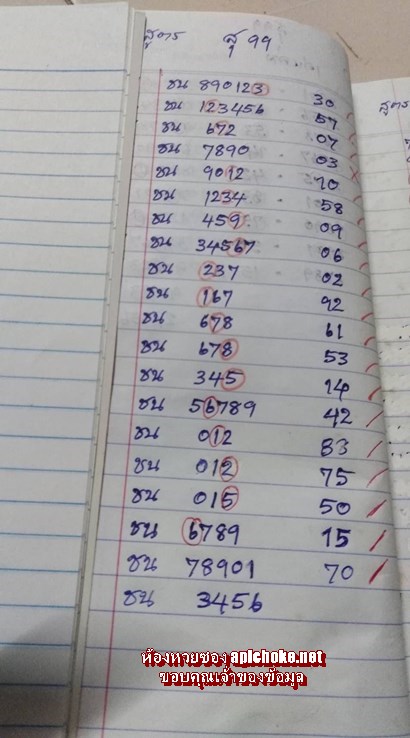 สูตร สุ 99
ชน 890123 - 30
ชน 123456 - 57
ชน 672 - 07
ชน 7890 03
ชน 9012 - 70
ชน 1234 - 58
ชน 459 09
ชน 34567 06
ชน 237 02
ชน 167 92
ชน 678 61
ชน 678 53
ชน 345 14
ชน 56789 42
ชน 012 83
ชน 012 75
ชน 015 50
ชน 6789 15
ชน 78901 70
ชน 3456
สูตร
ห้องหวยซอง apichoke.net
ขอบคุณเจ้าของข้อมูล